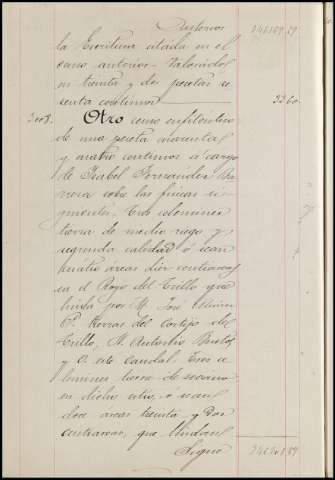 Anterior 
la Escritura citada en el
censo anterior. Valorado
en treinta y dos pesetas se
senta centimos 32 60
3008. Otro censo enfitéutico
de una peseta cuarenta
y cuatro centimos á cargo
de Isabel Fernandez
sobre las fincas si
guientes. Tres celemines
tierra de medio riego y
segunda calidad ó sean
cuatro áreas diez centiareas
en el Pago del Trillo que
linda por N. José
P. tierras del Cortijo del
Trillo, N. Antonio
y O. este Caudal. Tres ce
lemines tierra de secano
en dicho sitio, ó sean
doce áreas treinta y dos
centiareas, que lindan
Sigue